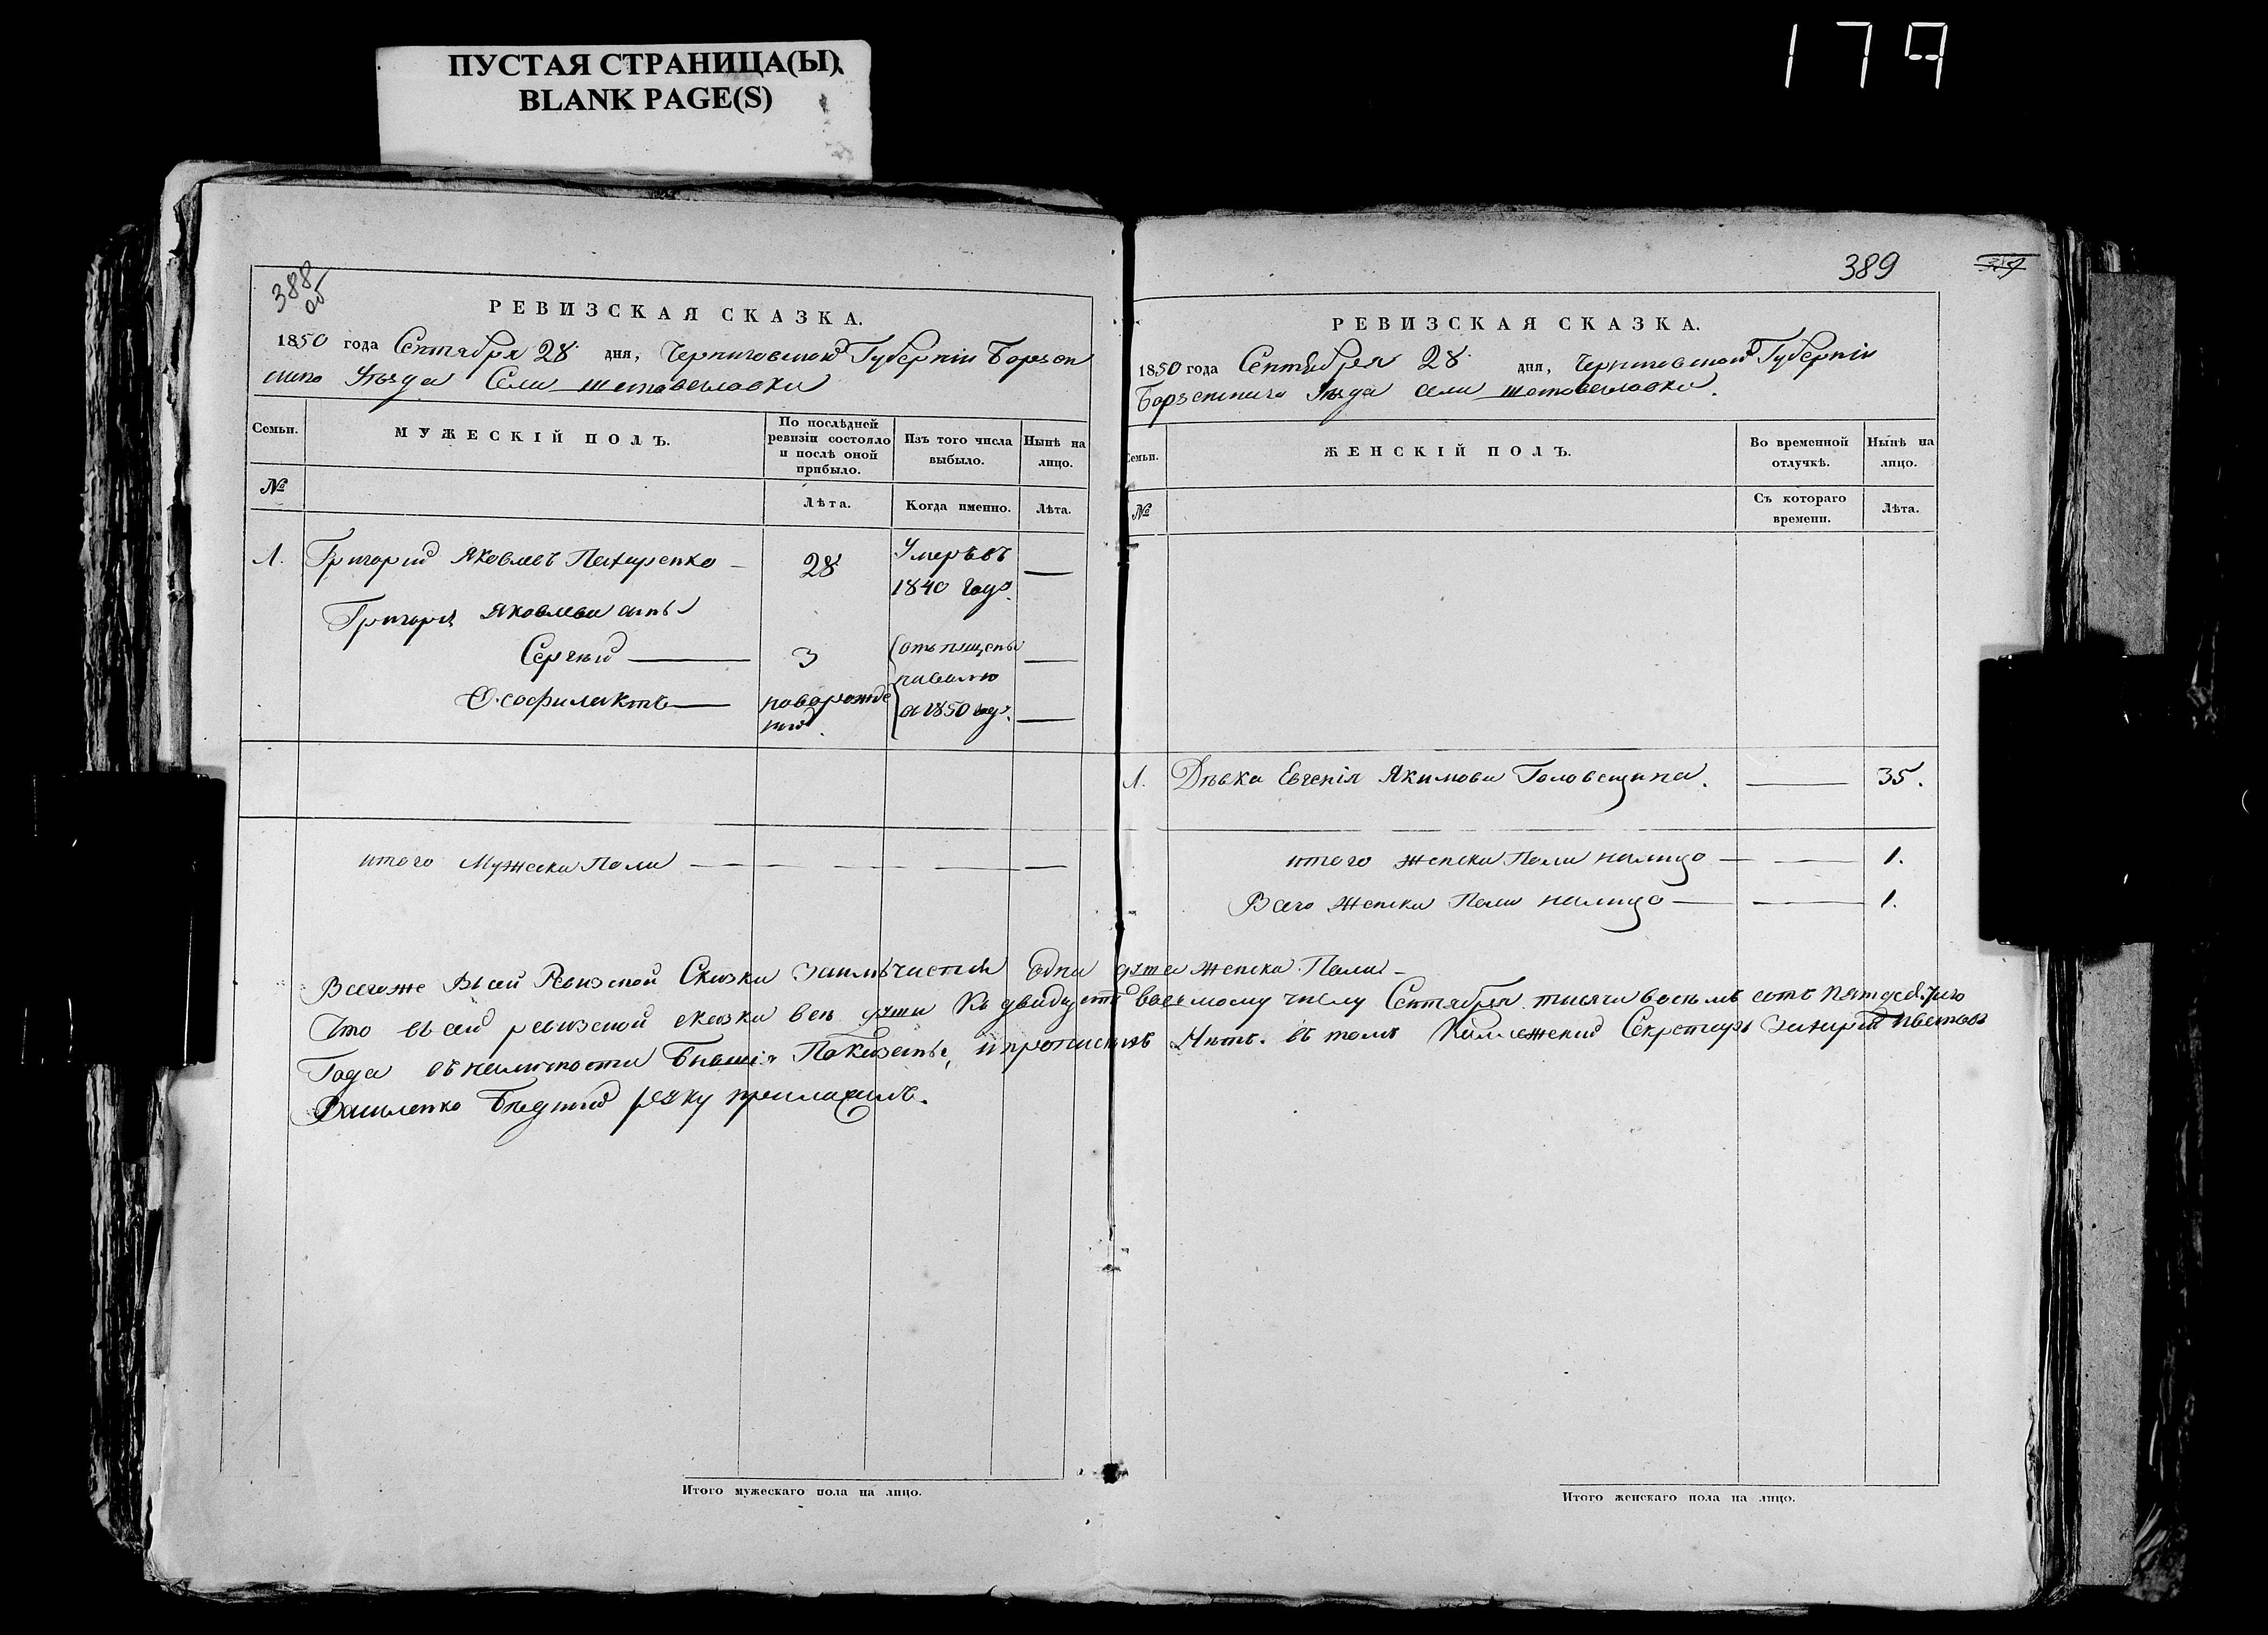 ПУСТАЯ СТРАНИЦА(Ы)
BLANK PAGE(S)
179
388
об
РЕВИЗСКАЯ СКАЗКА.
1850 года Сентября 28 дня, Черниговской Губерніи Борзен
скаго Уѣзда Села Шаповаловки
Семьи.
МУЖЕСКІЙ ПОЛЪ.
По послѣдней
ревизіи состояло
и послѣ оной
прибыло.
Изъ того числа
выбыло.
Нынѣ на
лицо.
№
Лѣта.
Когда именно.
Лѣта.
1. Григорій Яковлевъ Пономаренко 28 Умеръ въ
1840 году.
Григорія Яковлева сынъ
Сергѣй 3 отъпущены
Ѳеофилактъ новорожде
ный. наволю
въ 1850 году.
итого Мужеска Пола
389
РЕВИЗСКАЯ СКАЗКА.
1850 года Сентября 28 дня, Черниговской Губерніи
Борзенскаго Уѣзда села Шаповаловки.
Семьи.
ЖЕНСКІЙ ПОЛЪ.
Во временной
отлучкѣ.
Нынѣ на
лицо.
№
Съ котораго
времени.
Лѣта.
1. Дѣвка Евгенія Якимова Головещина. 35.
итого женска Пола налицо 1.
Всего женска Пола налицо 1.
Всегоже Въ сей Ревизской Сказки одна душа женска Пола
Что въ сей ревизской сказки все души Къ двадцать восьмому числу Сентября тысяча восемь сотъ пятьдесятаго
Года въ наличности бывшія Показаны, и прописныхъ Нѣтъ. въ томъ Коллежский Секретарь Захарій Ивановъ
Василенко Бѣдный руку приложилъ.
Итого мужескаго пола на лицо.
Итого женскаго пола на лицо.